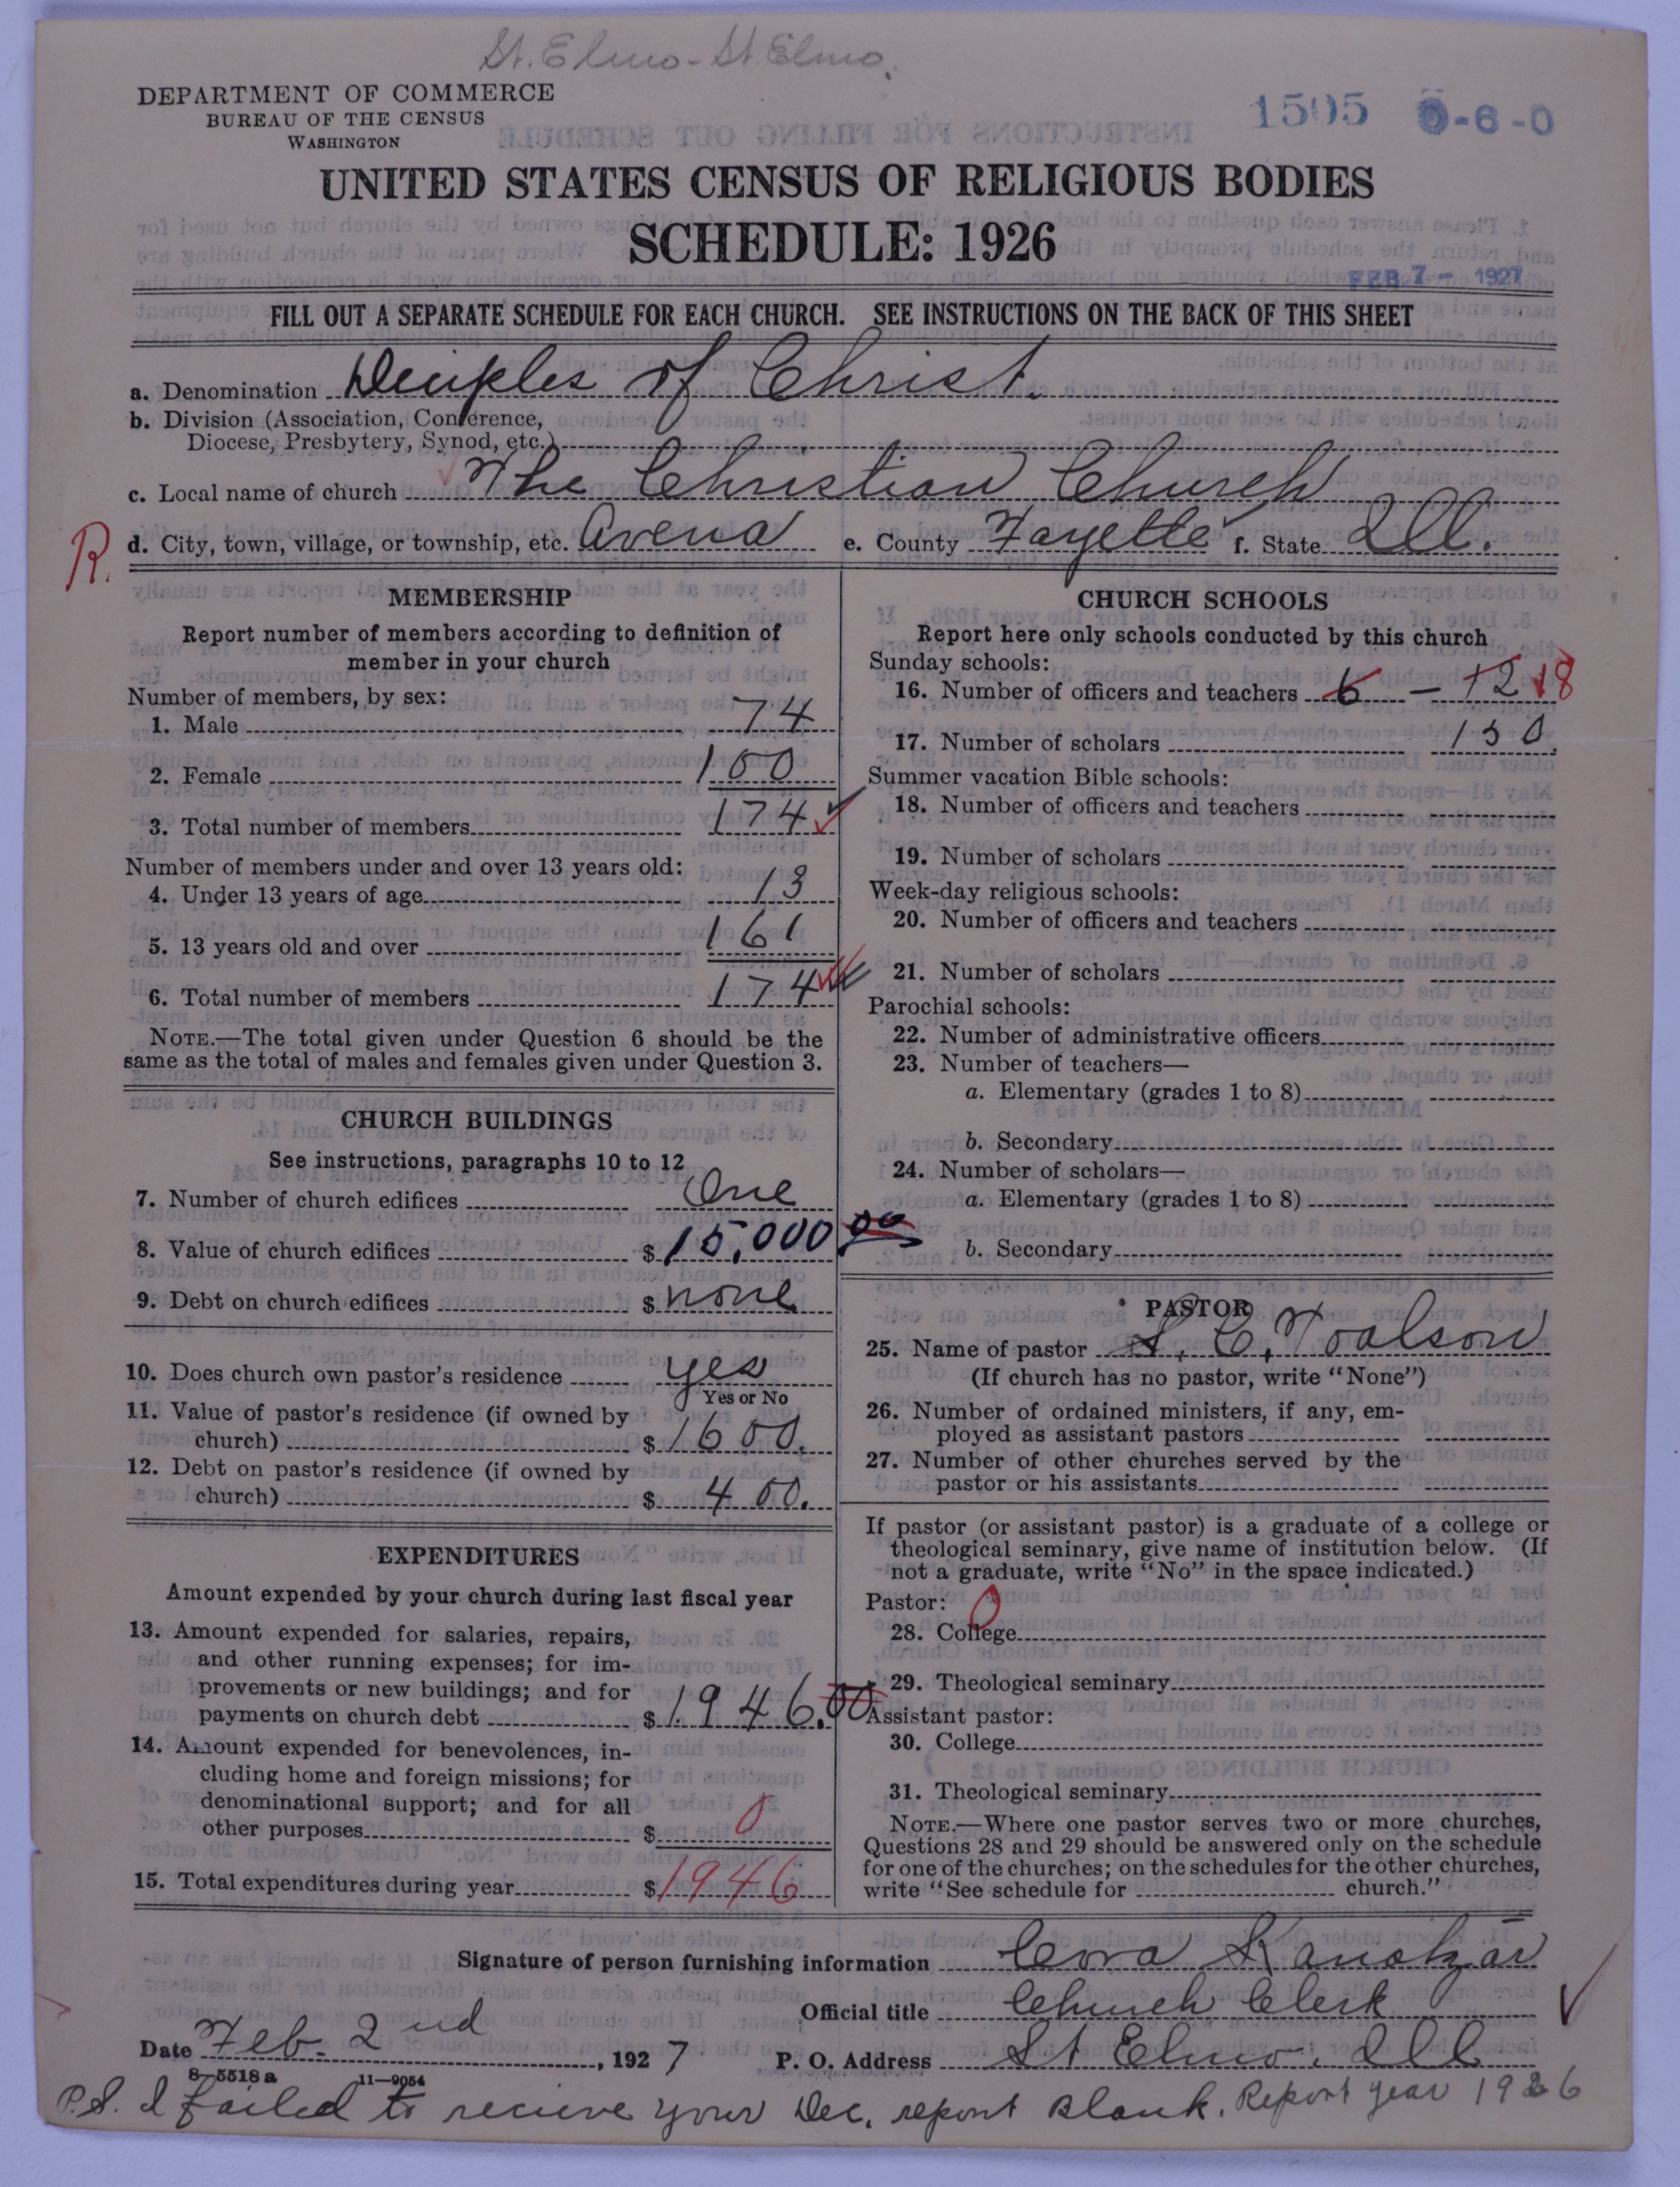 St. Elmo - St Elmo.
DEPARTMENT OF COMMERCE
BUREAU OF THE CENSUS
WASHINGTON
1505 0-6-0
UNITED STATES CENSUS OF RELIGIOUS BODIES
SCHEDULE: 1926
FEB 7 - 1927
FILL OUT A SEPARATE SCHEDULE FOR EACH CHURCH. SEE INSTRUCTIONS ON THE BACK OF THIS SHEET
a. Denomination Disciples of Christ.
b. Division (Association, Conference,
Diocese, Presbytery, Synod, etc.)
c. Local name of church The Christian Church
R. d. City, town, village, or township, etc. Avena e. County Fayette f. State Ill.
MEMBERSHIP
Report number of members according to definition of
member in your church
Number of members, by sex:
1. Male 74
2. Female 100
3. Total number of members 174
Number of members under and over 13 years old:
4. Under 13 years of age 13
5. 13 years old and over 161
6. Total number of members 174
NOTE.—The total given under Question 6 should be the
same as the total of males and females given under Question 3.
CHURCH BUILDINGS
See instructions, paragraphs 10 to 12
7. Number of church edifices One
8. Value of church edifices $ 15,000 00
9. Debt on church edifices $ none
10. Does church own pastor's residence yes
Yes or No
11. Value of pastor's residence (if owned by
church) $ 1600.
12. Debt on pastor's residence (if owned by
church) $ 400.
EXPENDITURES
Amount expended by your church during last fiscal year
13. Amount expended for salaries, repairs,
and other running expenses; for im-
provements or new buildings; and for
payments on church debt $ 1946.00
14. Amount expended for benevolences, in-
cluding home and foreign missions; for
denominational support; and for all
other purposes $ 0
15. Total expenditures during year $ 1946
CHURCH SCHOOLS
Report here only schools conducted by this church
Sunday schools:
16. Number of officers and teachers 6 - 12 18
17. Number of scholars 130.
Summer vacation Bible schools:
18. Number of officers and teachers
19. Number of scholars
Week-day religious schools:
20. Number of officers and teachers
21. Number of scholars
Parochial schools:
22. Number of administrative officers
23. Number of teachers—
a. Elementary (grades 1 to 8)
b. Secondary
24. Number of scholars—
a. Elementary (grades 1 to 8)
b. Secondary
PASTOR
25. Name of pastor S. C. Toalson
(If church has no pastor, write "None")
26. Number of ordained ministers, if any, em-
ployed as assistant pastors
27. Number of other churches served by the
pastor or his assistants
If pastor (or assistant pastor) is a graduate of a college or
theological seminary, give name of institution below. (If
not a graduate, write "No" in the space indicated.)
Pastor: 0
28. College
29. Theological seminary
Assistant pastor:
30. College
31. Theological seminary
NOTE.—Where one pastor serves two or more churches,
Questions 28 and 29 should be answered only on the schedule
for one of the churches; on the schedules for the other churches,
write "See schedule for church."
Signature of person furnishing information Cora
Official title Church Clerk
Date Feb. 2nd, 1927 P. O. Address St Elmo, Ill
8-5518a 11-9054
P.S. I failed to recieve your Dec. report Blank. Report year 1926